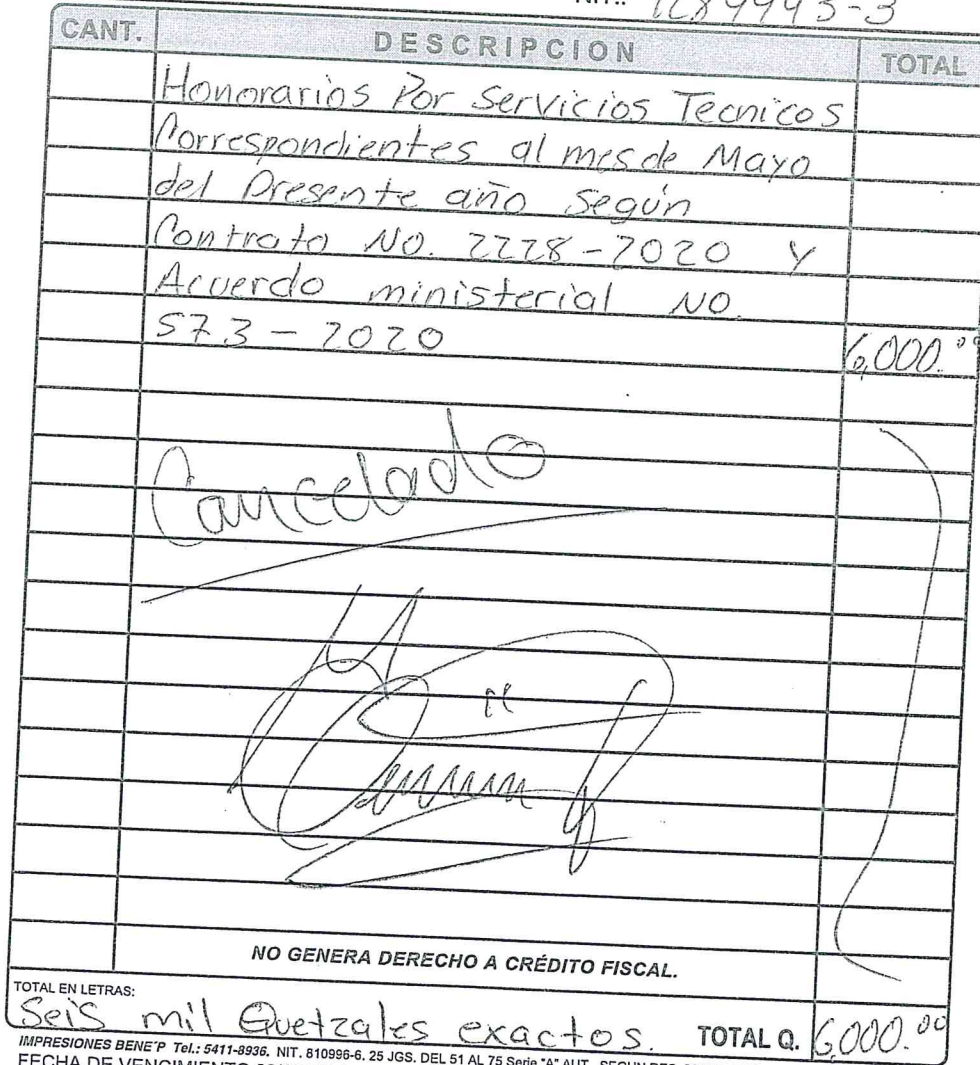 NIT.: 1289993-3
CANT. DESCRIPCION TOTAL
Honorarios Por Servicios Tecnicos
Correspondientes al mes de Mayo
del Presente año Según
Contrato NO. 2228-2020 Y
Acuerdo ministerial NO.
573-2020 6,000.00
Cancelado
NO GENERA DERECHO A CRÉDITO FISCAL.
TOTAL EN LETRAS:
Seis mil Quetzales exactos. TOTAL Q. 6,000.00
IMPRESIONES BENE'P Tel.: 5411-8936. NIT. 810996-6. 25 JGS. DEL 51 AL 75 Serie "A" AUT.
FECHA DE VENCIMIENTO